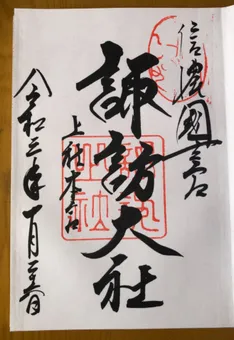 信濃國一之宮
諏訪大社
上社本宮
令和三年一月三日